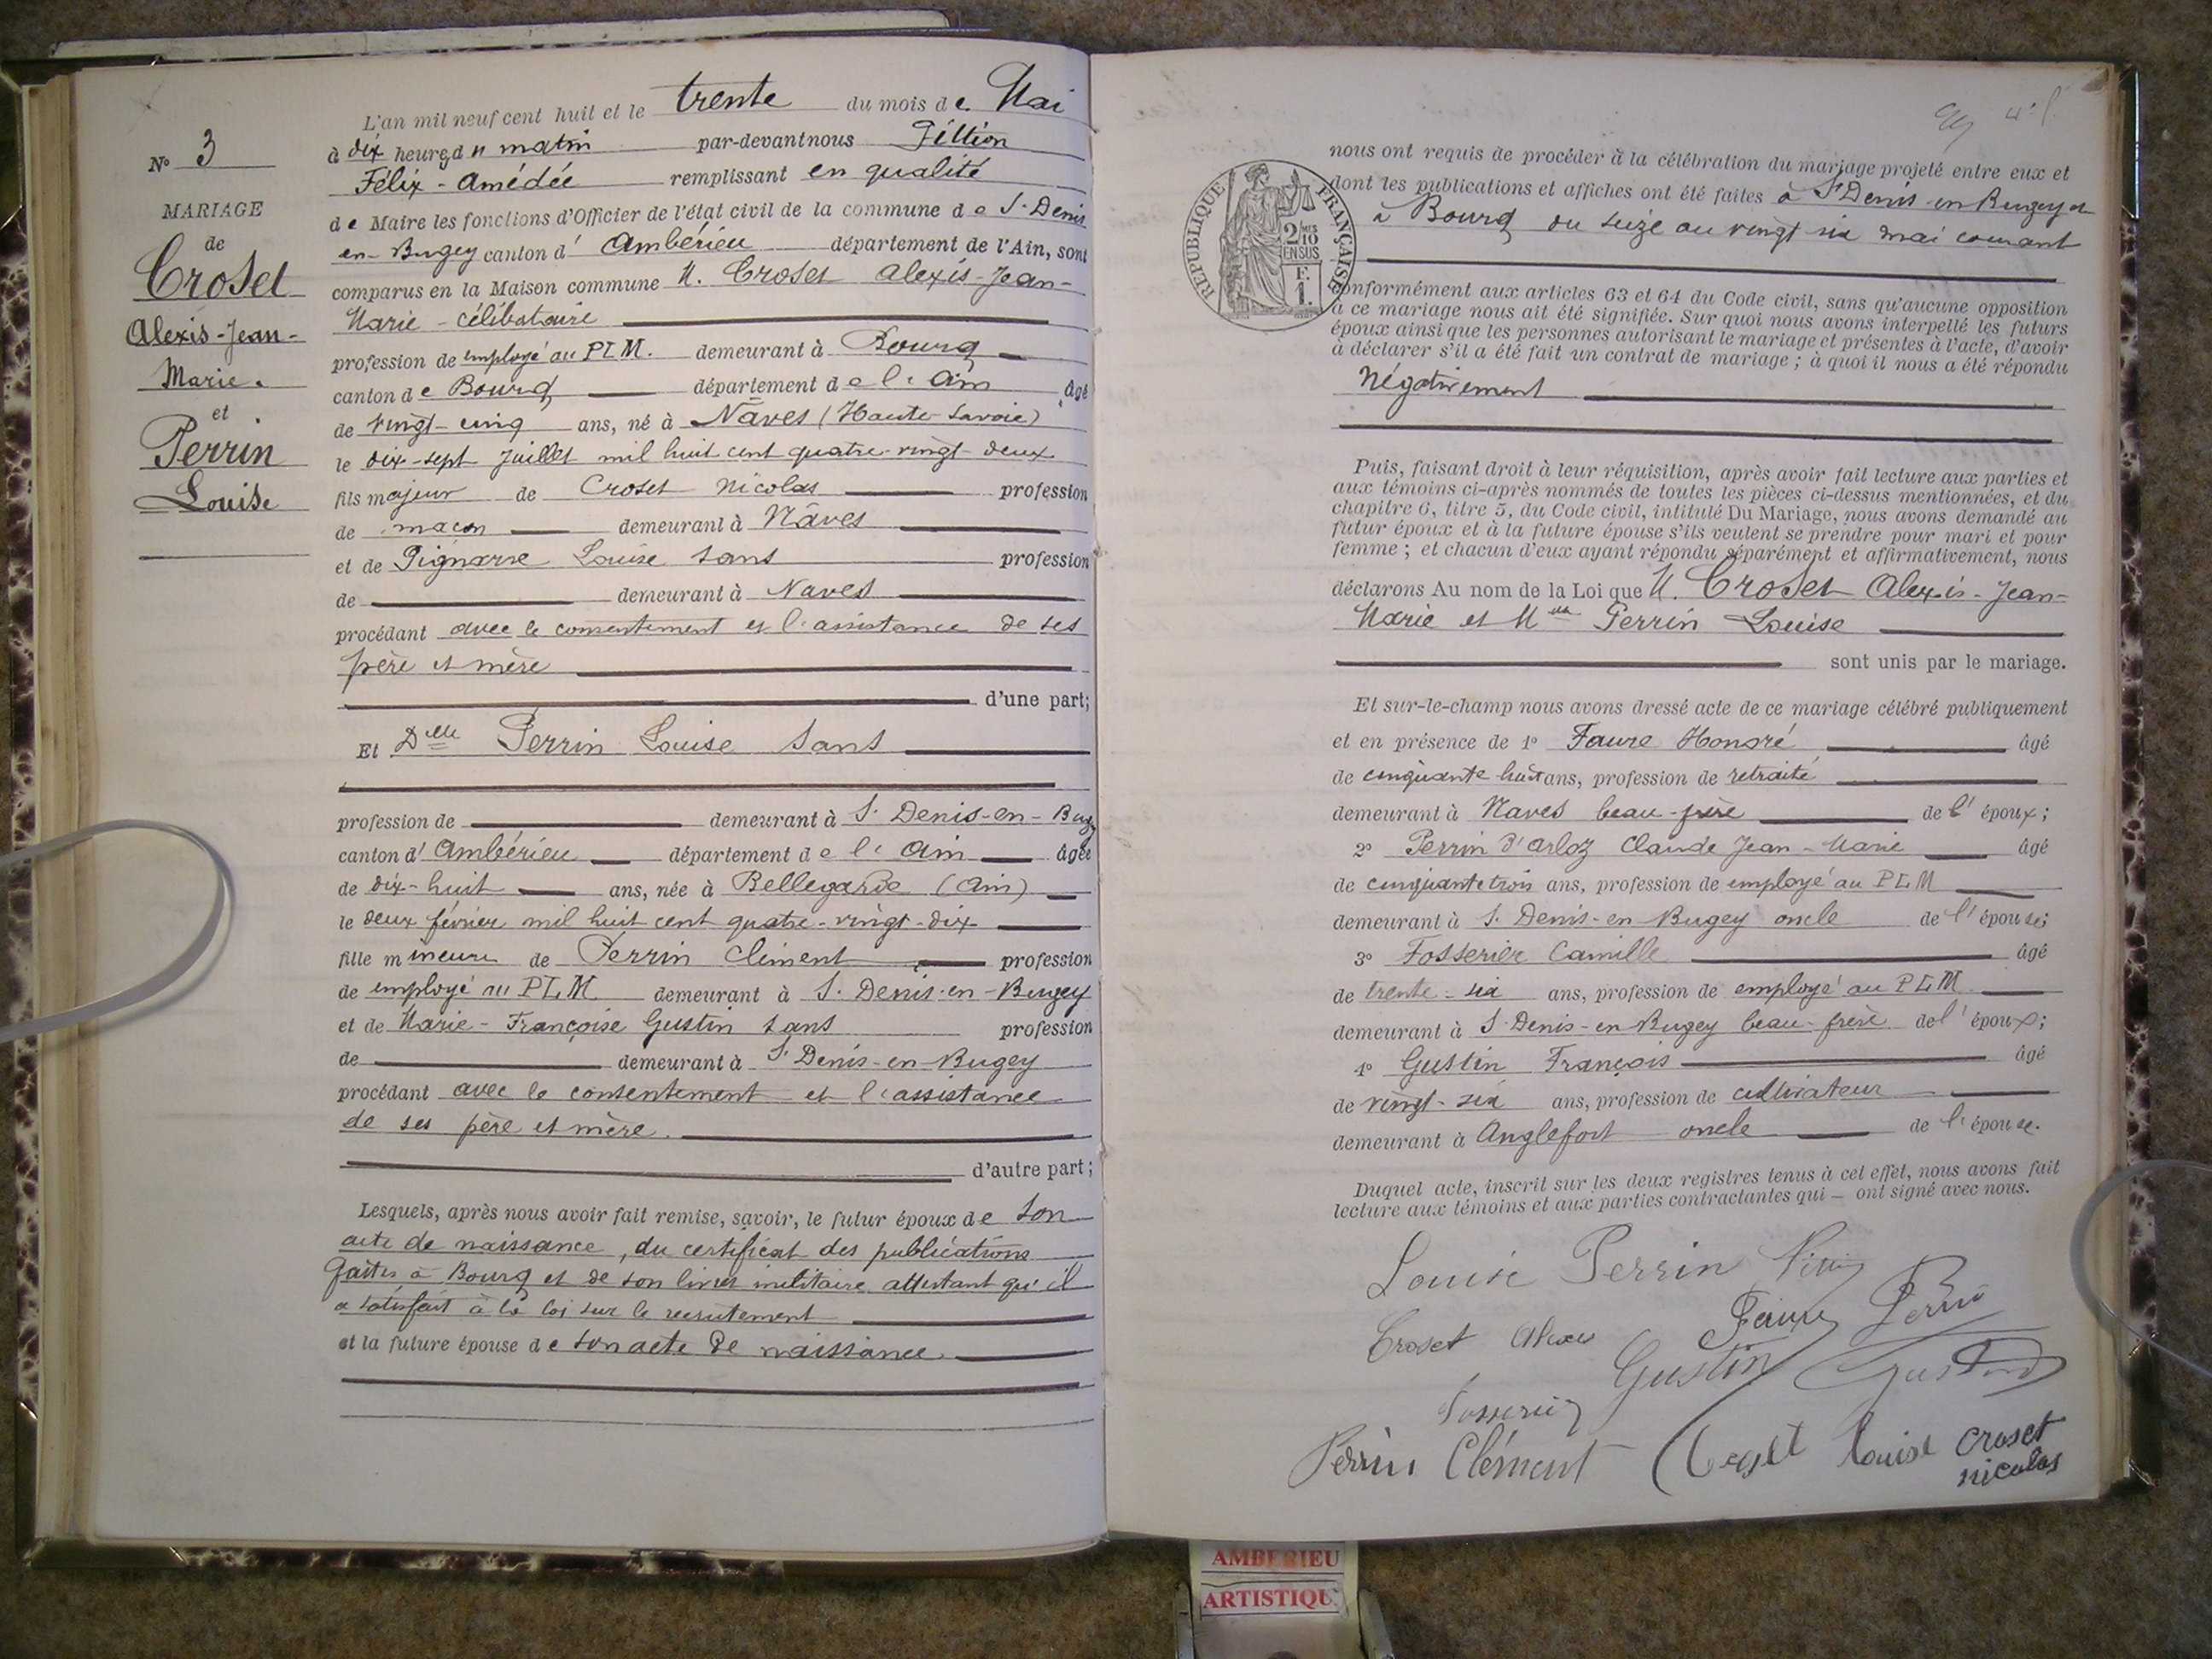 L'an mil neuf cent huit et le trente du mois de Mai
N° 3
à dix heures du matin par-devant nous Pittion
Félix-Amédée remplissant en qualité
MARIAGE
de Maire les fonctions d'Officier de l'état civil de la commune de St Denis
de
en-Bugey canton d' Ambérieu département de l'Ain, sont
Croset
comparus en la Maison commune M. Croset Alexis-Jean-
Alexis-Jean-
Marie - célibataire
Marie.
profession de employé au PLM. demeurant à Bourg
canton de Bourg département de l'Ain âgé
et
de vingt-cinq ans, né à Nâves (Haute-Savoie)
Perrin
le dix-sept Juillet mil huit cent quatre-vingt-deux
Louise
fils majeur de Croset Nicolas profession
de maçon demeurant à Nâves
et de Pignarre Louise sans profession
de demeurant à Naves
procédant avec le consentement et l'assistance de ses
père et mère
d'une part;
Et Dlle Perrin Louise sans
profession de demeurant à St Denis-en-Bugy
canton d' Ambérieu département de l'Ain âgée
de dix-huit ans, née à Bellegarde (Ain)
le deux février mil huit cent quatre-vingt-dix
fille mineure de Perrin Clément profession
de employé au PLM demeurant à St Denis-en-Bugey
et de Marie-Françoise Gustin sans profession
de demeurant à St Denis-en-Bugey
procédant avec le consentement et l'assistance
de ses père et mère.
d'autre part;
Lesquels, après nous avoir fait remise, savoir, le futur époux de son
acte de naissance, du certificat des publications
faites à Bourg et de son livret militaire attestant qu'il
a satisfait à la loi sur le recrutement
et la future épouse de son acte de naissance
nous ont requis de procéder à la célébration du mariage projeté entre eux et
dont les publications et affiches ont été faites à St Denis-en-Bugey et
à Bourg du seize au vingt six mai courant
REPUBLIQUE FRANÇAISE
2 MES 10
EN SUS
F.
1.
conformément aux articles 63 et 64 du Code civil, sans qu'aucune opposition
à ce mariage nous ait été signifiée. Sur quoi nous avons interpellé les futurs
époux ainsi que les personnes autorisant le mariage et présentes à l'acte, d'avoir
à déclarer s'il a été fait un contrat de mariage ; à quoi il nous a été répondu
Négativement
Puis, faisant droit à leur réquisition, après avoir fait lecture aux parties et
aux témoins ci-après nommés de toutes les pièces ci-dessus mentionnées, et du
chapitre 6, titre 5, du Code civil, intitulé Du Mariage, nous avons demandé au
futur époux et à la future épouse s'ils veulent se prendre pour mari et pour
femme ; et chacun d'eux ayant répondu séparément et affirmativement, nous
déclarons Au nom de la Loi que M. Croset Alexis-Jean-
Marie et Mlle Perrin Louise
sont unis par le mariage.
Et sur-le-champ nous avons dressé acte de ce mariage célébré publiquement
et en présence de 1° Faure Honoré âgé
de cinquante huit ans, profession de retraité
demeurant à Naves beau-père de l' époux;
2° Perrin d'Arloz Claude Jean-Marie âgé
de cinquante trois ans, profession de employé au PLM
demeurant à St Denis-en-Bugey oncle de l'épouse;
3° Fosserier Camille âgé
de trente-six ans, profession de employé au PLM
demeurant à St Denis-en-Bugey beau-frère de l' époux;
4° Gustin François âgé
de vingt-six ans, profession de cultivateur
demeurant à Anglefort oncle de l'épouse.
Duquel acte, inscrit sur les deux registres tenus à cet effet, nous avons fait
lecture aux témoins et aux parties contractantes qui — ont signé avec nous.
Louise Perrin
Croset Alexis Faure Perrin
Gustin Gustin
Fosserier
Perrin Clément Croset Louise Croset
nicolas
AMBERIEU
ARTISTIQU